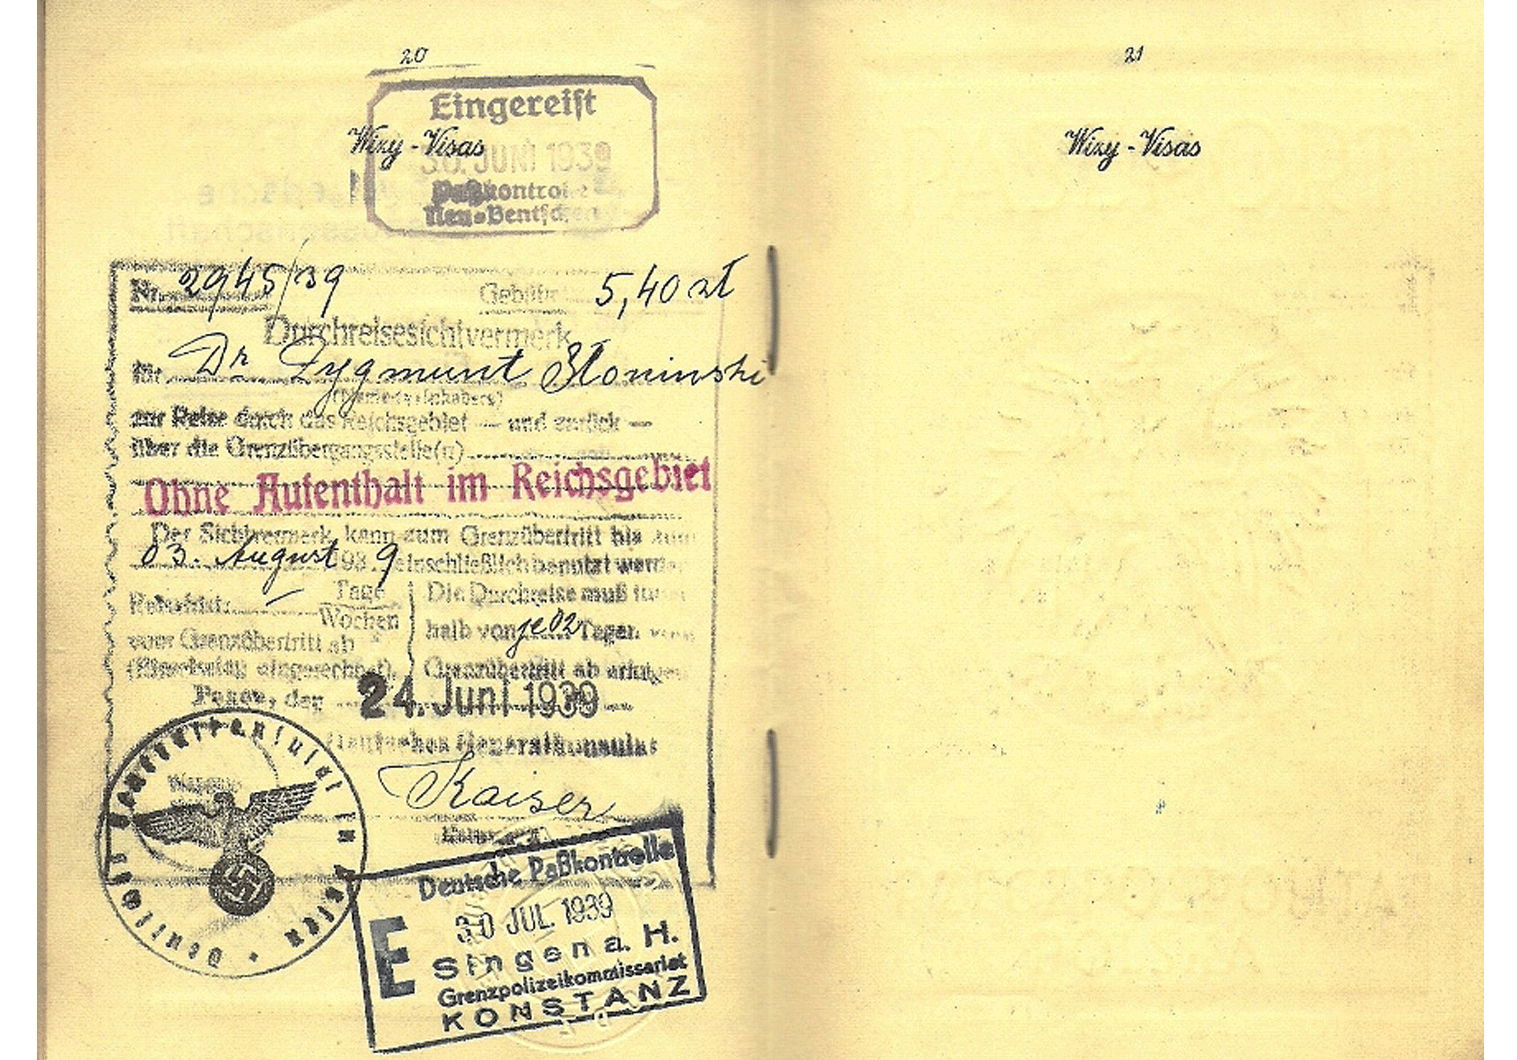 20
Eingereist
Wizy - Visas
30. JUNI 1939
Paßkontrolle
Neu-Bentschen
Nr. 2945/39 Gebühr 5,40 zł
Durchreisesichtvermerk
für Dr Zygmunt Słoninski
(Name des Inhabers)
zur Reise durch das Reichsgebiet — und zurück —
über die Grenzübergangsstelle(n)
Ohne Aufenthalt im Reichsgebiet
Der Sichtvermerk kann zum Grenzübertritt bis zum
03. August 1939 einschließlich benutzt werden
Reisefrist: — Tage
Wochen
vom Grenzübertritt ab
(Einreisetag eingerechnet).
Die Durchreise muß inner
halb von je 02 Tagen vom
Grenzübertritt ab erfolgen
Posen, den 24. Juni 1939
Deutsches Generalkonsulat
Kaiser
Deutsches Generalkonsulat in Posen
Deutsche Paßkontrolle
30 JUL. 1939
E
Singen a. H.
Grenzpolizeikommissariat
KONSTANZ
21
Wizy - Visas